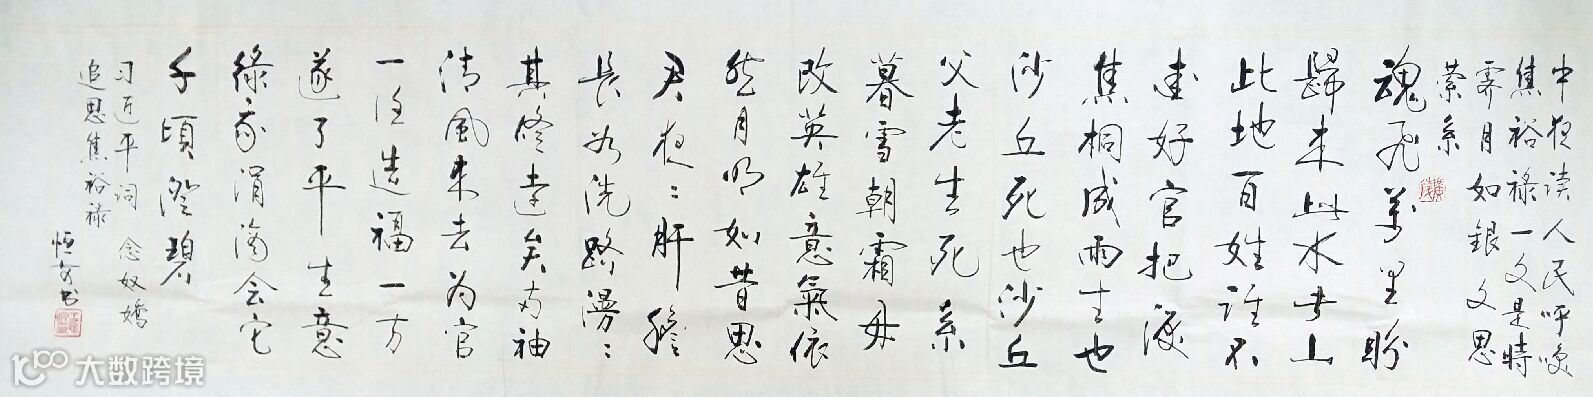 中夜读人民呼唤
焦裕禄一文是時
霽月如銀文思
萦系
魂飛萬里盼
歸来此水此山
此地百姓谁不
爱好官把淚
焦桐成雨生也
沙丘死也沙丘
父老生死系
暮雪朝霜毋
改英雄意氣依
然月明如昔思
君夜〻肝膽
長如洗路漫〻
其修遠矣两袖
清風来去为官
一任造福一方
遂了平生意
綠我涓滴会它
千頃澄碧
习近平词 念奴嬌
追思焦裕禄
大数跨境